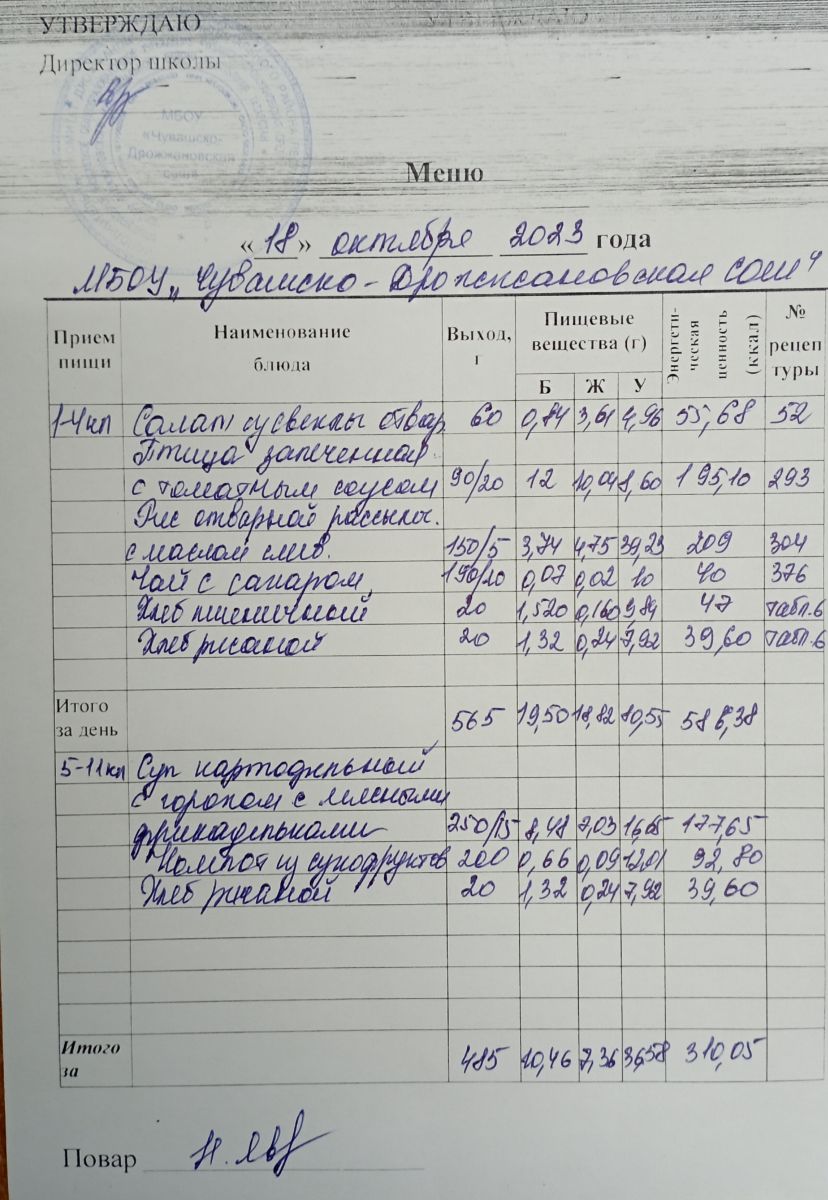 УТВЕРЖДАЮ
Директор школы
МБОУ
«Чувашско-
Дрожжановская
СОШ»
Меню
« 18 » октября 2023 года
МБОУ „Чувашско-Дрожжановская СОШ"
Прием пищи Наименование блюда Выход, г Пищевые вещества (г) Б Ж У Энергети-ческая ценность (ккал) № рецеп туры
1-4 кл Салат су свеклы отвар 60 0,84 3,61 4,96 55,68 52
Птица запеченная
с томатным соусом 90/20 12 10,04 8,60 195,10 293
Рис отварной рассыпч.
с маслом слив. 150/5 3,74 4,75 39,23 209 304
Чай с сахаром 190/10 0,07 0,02 10 40 376
Хлеб пшеничный 20 1,520 0,160 9,84 47 табл.6
Хлеб ржаной 20 1,32 0,24 7,92 39,60 табл.6
Итого за день 565 19,50 18,82 80,55 586,38
5-11 кл Суп картофельный
с горохом с мясными
фрикадельками 250/15 8,48 7,03 16,65 177,65
Компот из сухофруктов 200 0,66 0,09 12,01 92,80
Хлеб ржаной 20 1,32 0,24 7,92 39,60
Итого за 485 10,46 7,36 36,58 310,05
Повар